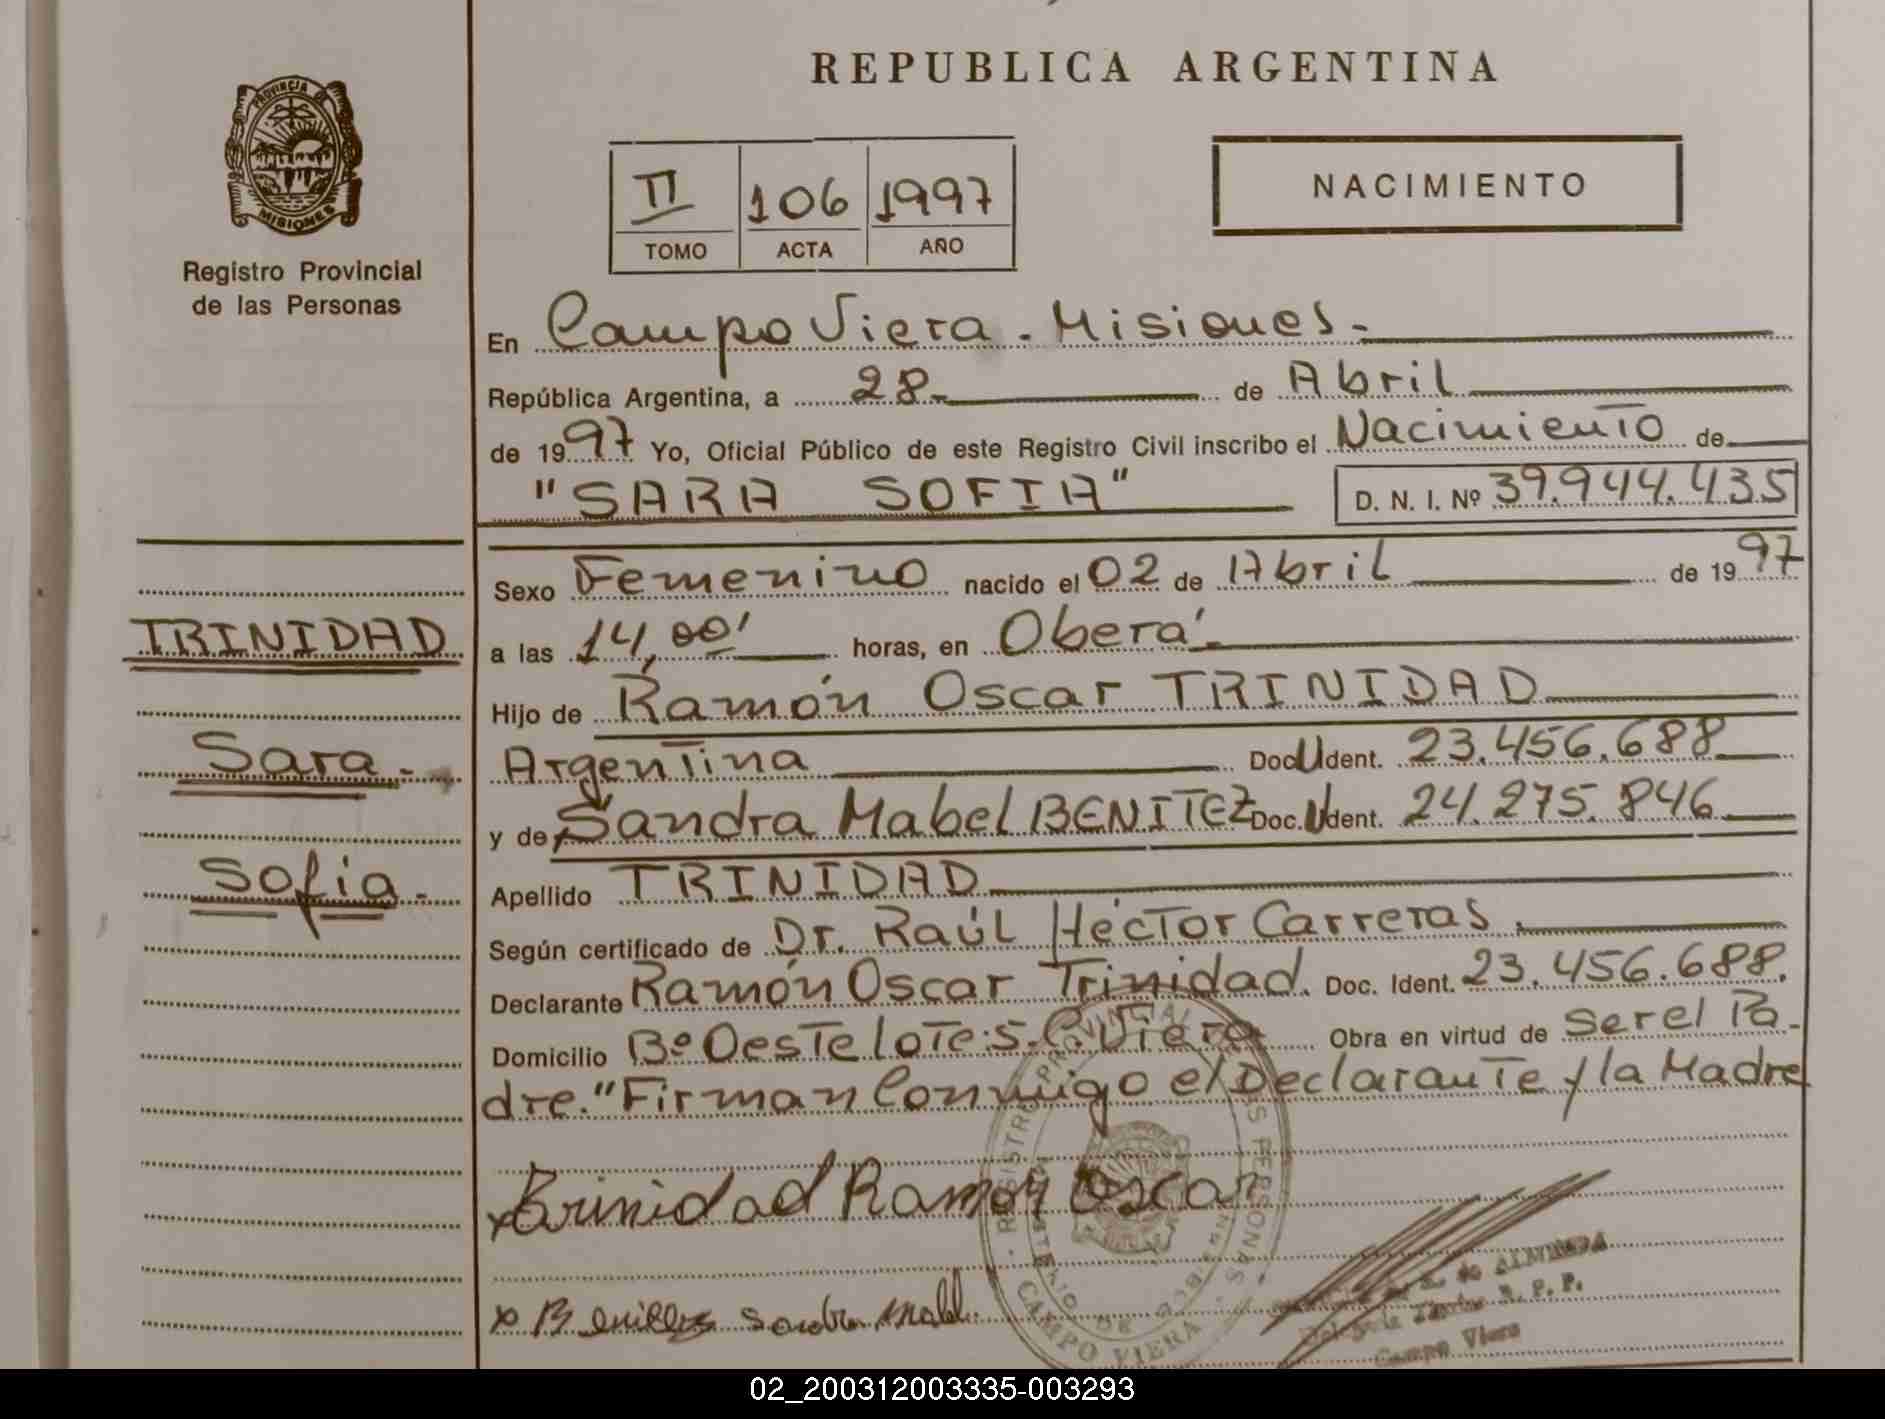 REPUBLICA ARGENTINA
PROVINCIA DE
MISIONES
Registro Provincial
de las Personas
II 106 1997
TOMO ACTA AÑO
NACIMIENTO
En Campo Viera . Misiones.
República Argentina, a 28 de Abril
de 1997 Yo, Oficial Público de este Registro Civil inscribo el Nacimiento de
"SARA SOFIA" D. N. I. Nº 39.944.435
Sexo Femenino nacido el 02 de Abril de 1997
a las 14,00' horas, en Oberá.
Hijo de Ramón Oscar TRINIDAD
Argentina Doc. U Ident. 23.456.688
y de Sandra Mabel BENITEZ Doc. U Ident. 24.275.846
Apellido TRINIDAD
Según certificado de Dr. Raúl Héctor Carreras.
Declarante Ramón Oscar Trinidad. Doc. Ident. 23.456.688.
Domicilio Bº Oeste lote: 5. C. Viera Obra en virtud de ser el Pa-
dre." Firman Conmigo el Declarante y la Madre
TRINIDAD
Sara.
Sofia.
x Trinidad Ramon Oscar
x Benitez Sandra Mabel.
REGISTRO PROVINCIAL DE LAS PERSONAS
CAMPO VIERA
de ALMEIDA
R. P. P.
Campo Viera
02_200312003335-003293